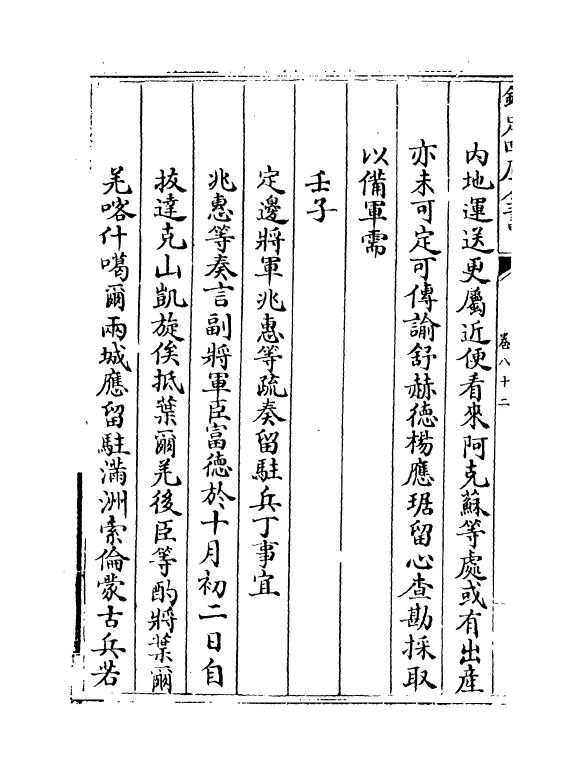 欽定四庫全書
卷八十二
內地運送更屬近便看來阿克蘇等處或有出產
亦未可定可傳諭舒赫德楊應琚留心查勘採取
以備軍需
壬子
定邊將軍兆惠等疏奏留駐兵丁事宜
兆惠等奏言副將軍臣富德於十月初二日自
拔達克山凱旋俟抵葉爾羌後臣等酌將葉爾
羌喀什噶爾兩城應留駐滿洲索倫蒙古兵若